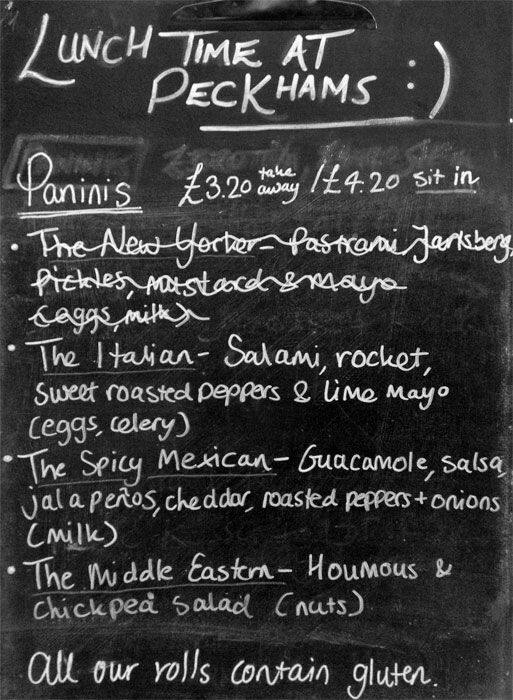 LUNCH TIME AT
PECKHAMS :)
PANINIS £3.20 take away / £4.20 sit in
• The New Yorker - Pastrami, Jarlsberg,
Pickles, mustard & mayo
(eggs, milk)
• The Italian - Salami, rocket,
sweet roasted peppers & lime mayo
(eggs, celery)
• The Spicy Mexican - Guacamole, salsa,
jalapeños, cheddar, roasted peppers + onions
(milk)
• The Middle Eastern - Houmous &
chickpea salad (nuts)
All our rolls contain gluten.